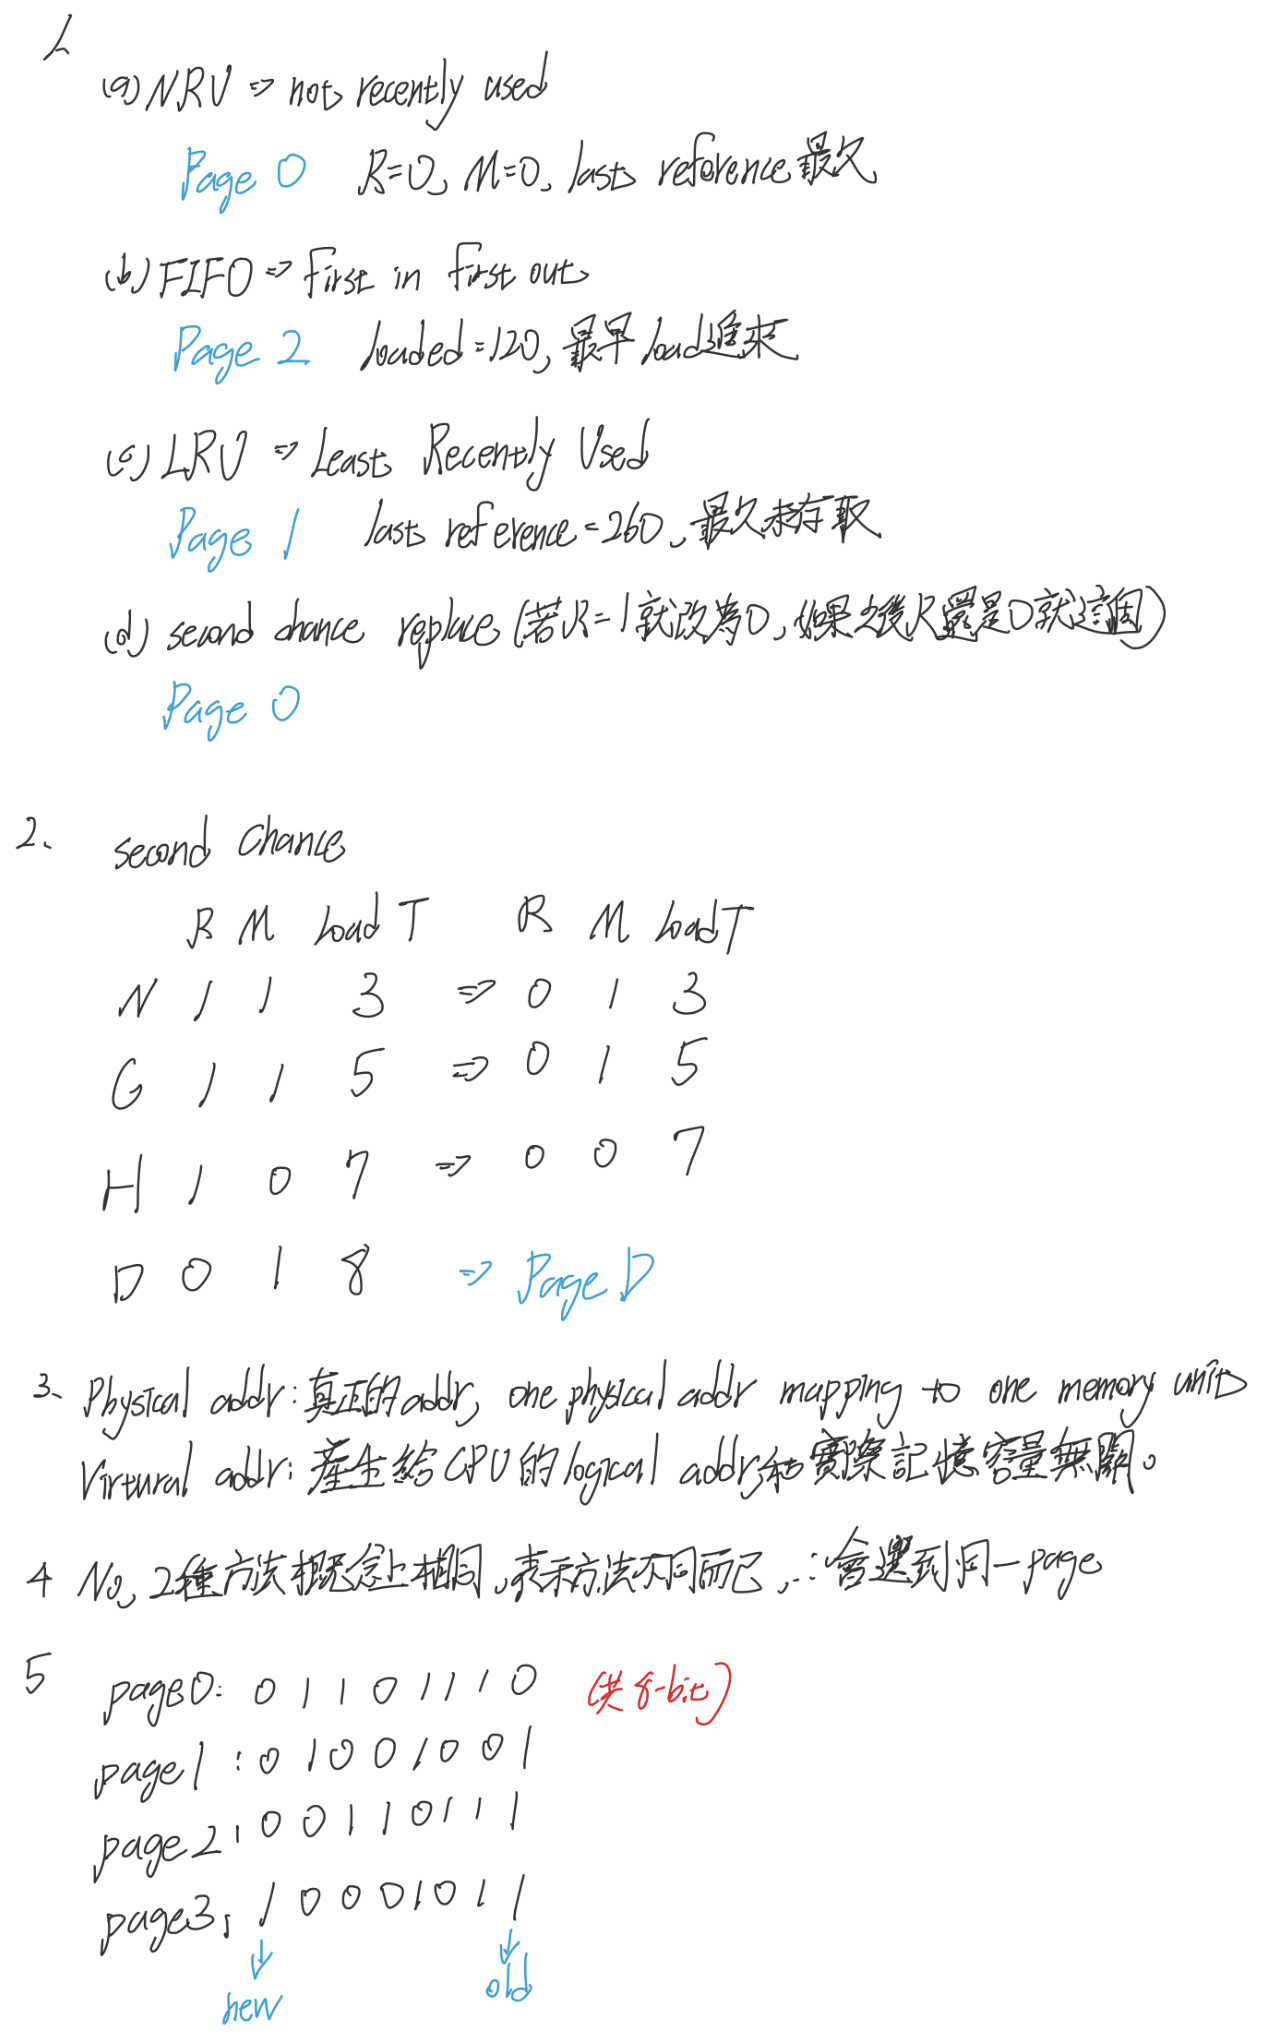 1.
(a) NRU => not recently used
Page 0 R=0, M=0, last reference 最久
(b) FIFO => first in first out
Page 2 loaded=120, 最早load進來
(c) LRU => Least Recently Used
Page 1 last reference=260, 最久未存取
(d) second chance replace (若R=1就改為0, 如果之後R還是0就這個)
Page 0
2. second chance
R M Load T R M Load T
N 1 1 3 => 0 1 3
G 1 1 5 => 0 1 5
H 1 0 7 => 0 0 7
D 0 1 8 => Page D
3. Physical addr: 真正的addr, one physical addr mapping to one memory unit
Virtural addr: 產生給CPU的logical addr, 和實際記憶容量無關。
4 No, 2種方法概念上相同, 表示方法不同而已, ∴會選到同一page
5 page0: 0 1 1 0 1 1 1 0 (共8-bit)
page1: 0 1 0 0 1 0 0 1
page2: 0 0 1 1 0 1 1 1
page3: 1 0 0 0 1 0 1 1
new old